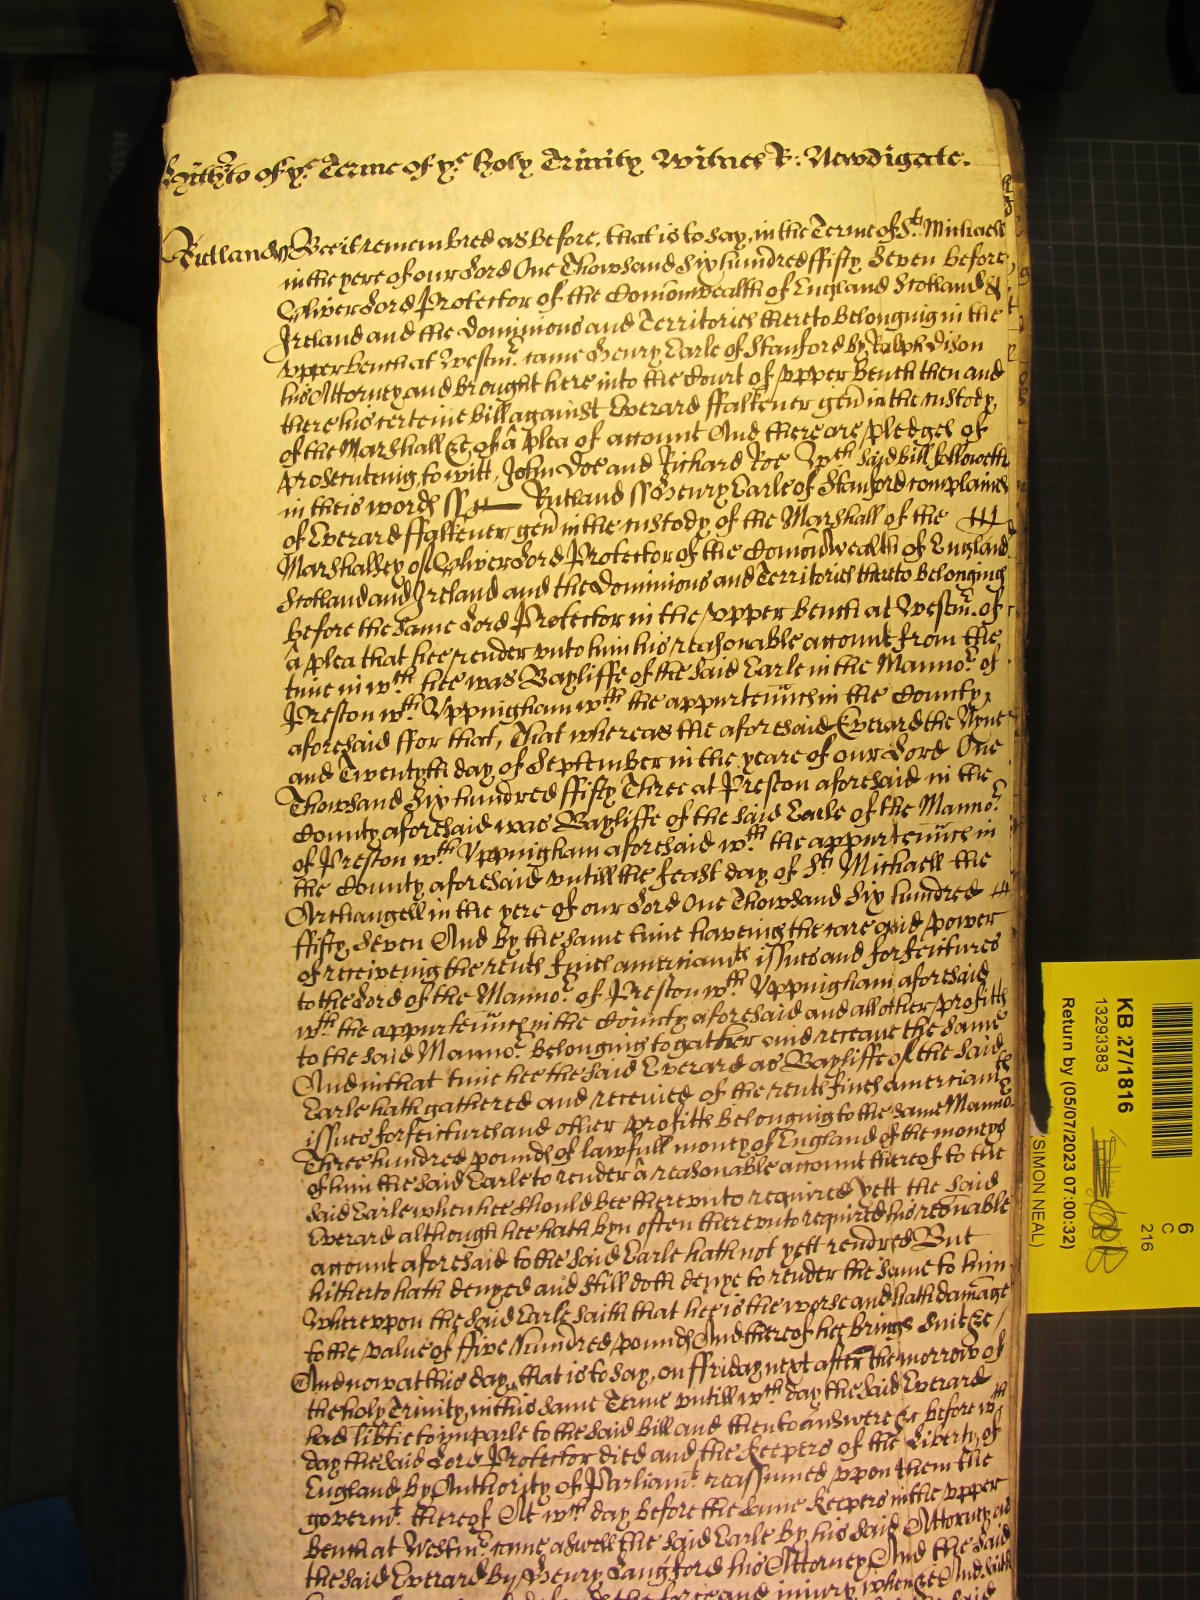 of ye. Terme of ye. holy Trinity Witnes R: Newdigate.
Rutland ss Bee it remembred as before, that is to say, in the Terme of St. Michaell
in the yere of our Lord One Thowsand Six hundred ffifty Seven before
Oliver Lord Protector of the Comonwealth of England Scotland &
Ireland and the Dominions and Territories thereto belonging in the
vpper bench at Westmr. came Henry Earle of Stanford by Ralph Dison
his Attorney and brought here into the Court of vpper Bench then and
there his certeine bill against Everard ffalkener gen in the custody
of the Marshall &c of a plea of account And there are pledges of
prosecuteing, to witt, John Doe and Richard Roe Wch. said bill followeth
in theis words ss Rutland ss Henry Earle of Stanford complaines
of Everard ffalkener gen in the custody of the Marshall of the
Marshalsey of Oliver Lord Protector of the Comonwealth of England
Scotland and Ireland and the Dominions and Territories thereto belonging
before the same Lord Protector in the vpper bench at Westmr. of
a plea that hee render vnto him his reasonable account from the
time in wch. hee was Bayliffe of the said Earle in the Mannor. of
Preston wth. Vppingham wth. the appurtennces in the County
aforesaid ffor that, That whereas the aforesaid Everard the Nyne
and Twentyth day of September in the yeare of our Lord One
Thowsand Six hundred ffifty Three at Preston aforesaid in the
County aforesaid was Bayliffe of the said Earle of the Mannor.
of Preston wth. Vppingham aforesaid wth. the appurtennces in
the County aforesaid vntill the feast day of St. Michaell the
Archangell in the yere of our Lord One Thowsand Six hundred
ffifty Seven And by the same time haveing the care and power
of receiveing the rents fines amerciamts issues and forfeitures
to the Lord of the Mannor. of Preston wth. Vppingham aforesaid
wth. the appurtennces in the County aforesaid and all other profitts
to the said Mannor. belonging to gather and receave the same
And in that time hee the said Everard as Bayliffe of the said
Earle hath gathered and received of the rents fines amerciamts
issues forfeitures and other profitts belonging to the same Mannor.
Three hundred pounds of lawfull money of England of the moneys
of him the said Earle to render a reasonable account thereof to the
said Earle when hee should bee therevnto required yett the said
Everard although hee hath byn often therevnto required his resonable
account aforesaid to the said Earle hath not yett rendred But
hitherto hath denyed and still doth denye to render the same to him
Wherevpon the said Earle saith that hee is the worse and hath damage
to the value of ffive hundred pounds And thereof hee brings suite &c
And now at this day that is to say, on ffriday next after the morrow of
the holy Trinity, in this same Terme vntill wch. day the said Everard
had libtie to imparle to the said bill and then to answere &c before wch
day the said Lord Protector died and the Keepers of the Liberty of
England by Authority of Parliamt. reassumed vpon them the
governmt. thereof At wch. day before the same Keepers in the vpper
bench at Westmr. came aswell the said Earle by his said Attorney as
the said Everard by Henry Langford his Attorney And the said
the force and injury when &c And saith
KB 27/1816
13293383
Return by (05/07/2023 07:00:32)
(SIMON NEAL)
6
C
216